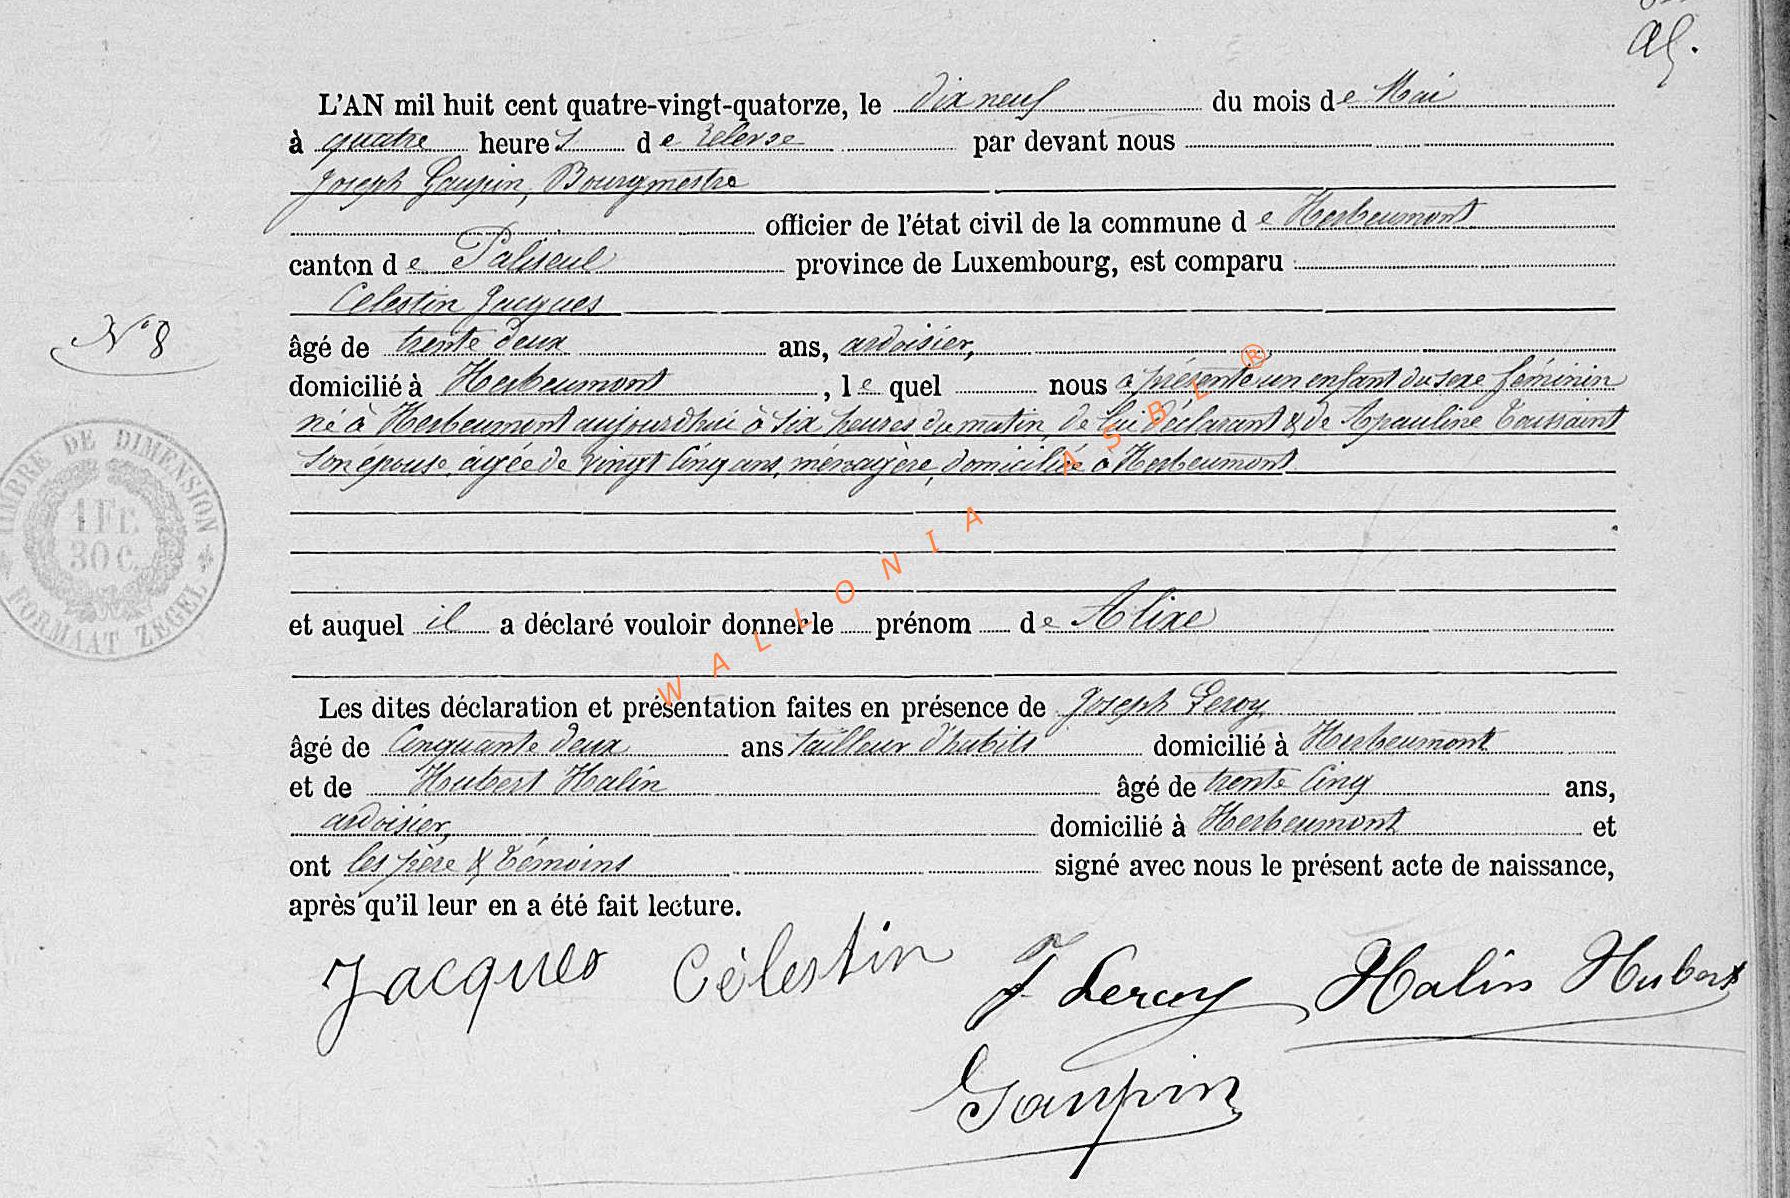 al.
L'AN mil huit cent quatre-vingt-quatorze, le dix neuf du mois de Mai
à quatre heures de relevée par devant nous
Joseph Gaupin, Bourgmestre
officier de l'état civil de la commune de Herbeumont
canton de Paliseul province de Luxembourg, est comparu
Célestin Jacques
N° 8
âgé de trente deux ans, ardoisier,
domicilié à Herbeumont, le quel nous a présenté un enfant du sexe féminin
né à Herbeumont aujourd'hui à six heures du matin, de lui déclarant & de Apauline Toussaint
son épouse, âgée de vingt cinq ans, ménagère, domiciliée à Herbeumont
TIMBRE DE DIMENSION
1 Fr.
30 c.
FORMAAT ZEGEL
et auquel il a déclaré vouloir donner le prénom de Alixe
Les dites déclaration et présentation faites en présence de Joseph Leroy
âgé de cinquante deux ans tailleur d'habits domicilié à Herbeumont
et de Hubert Halin âgé de trente cinq ans,
ardoisier, domicilié à Herbeumont et
ont les père & témoins signé avec nous le présent acte de naissance,
après qu'il leur en a été fait lecture.
Jacques Célestin J. Leroy Halin Hubert
Gaupin
WALLONIA ASBL ®